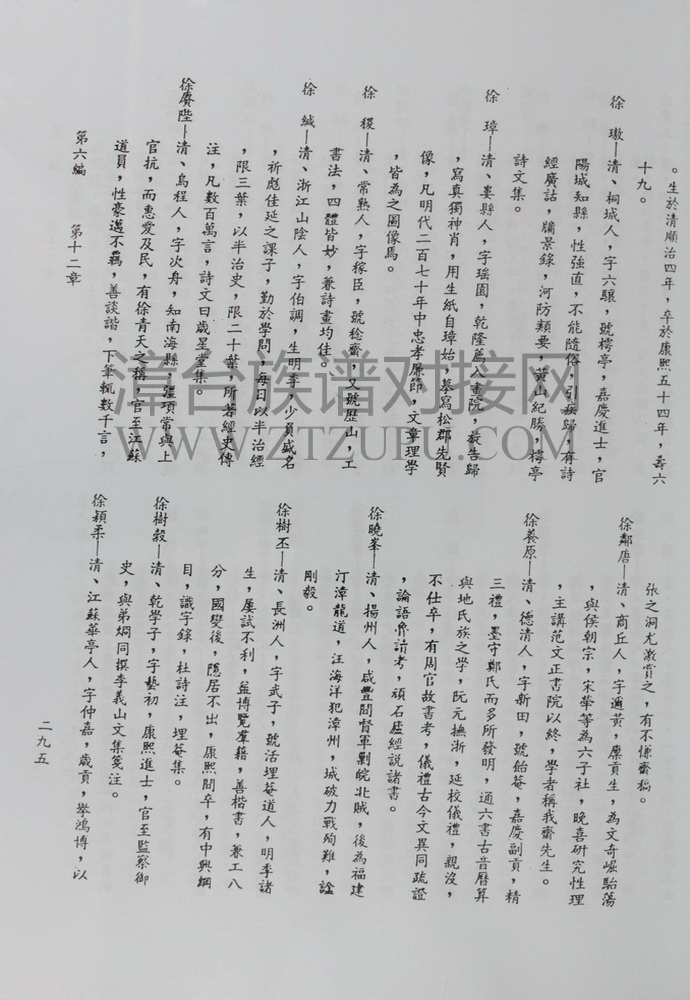 。生於清順治四年，卒於康熙五十四年，壽六
十九。
徐　璈—清、桐城人，字六驤，號樗亭，嘉慶進士，官
陽城知縣，性強直，不能隨俗，引疾歸，有詩
經廣詁，牖景錄，河防類要，黃山紀勝，樗亭
詩文集。
徐　璋—清、婁縣人，字瑤圃，乾隆薦入畫院，旋告歸
，寫真獨神肖，用生紙自璋始，摹寫松郡先賢
像，凡明代二百七十年中忠孝廉節，文章理學
，皆為之圖像焉。
徐　稷—清、常熟人，字稼臣，號稔齋，又號歷山，工
書法，四體皆妙，兼詩畫均佳。
徐　緘—清、浙江山陰人，字伯調，生明季，少負盛名
，祈彪佳延之課子，勤於學問，每日以半治經
，限三葉，以半治史，限二十葉，所著經史傳
注，凡數百萬言，詩文曰歲星堂集。
徐賡陛—清、烏程人，字次舟，知南海縣，強項常與上
官抗，而惠愛及民，有徐青天之稱，官至江蘇
道員，性豪邁不羈，善談諧，下筆輒數千言，
張之洞尤激賞之，有不慊齋稿。
徐鄰唐—清、商丘人，字邇黃，廩貢生，為文奇崛駘蕩
，與侯朝宗，宋犖等為六子社，晚喜研究性理
，主講范文正書院以終，學者稱我齋先生。
徐養原—清、德清人，字新田，號飴菴，嘉慶副貢，精
三禮，墨守鄭氏而多所發明，通六書古音曆算
與地氏族之學，阮元撫浙，延校儀禮，親沒，
不仕卒，有周官故書考，儀禮古今文異同疏證
，論語魯讀考，頑石廬經說諸書。
徐曉峯—清、揚州人，咸豐間督軍剿皖北賊，後為福建
汀漳龍道，汪海洋犯漳州，城破力戰殉難，諡
剛毅。
徐樹丕—清、長洲人，字武子，號活埋菴道人，明季諸
生，屢試不利，益博覽羣籍，善楷書，兼工八
分，國變後，隱居不出，康熙間卒，有中興綱
目，識字錄，杜詩注，埋菴集。
徐樹穀—清、乾學子，字藝初，康熙進士，官至監察御
史，與弟炯同撰李義山文集箋注。
徐穎柔—清、江蘇華亭人，字仲嘉，歲貢，舉鴻博，以
第六編　第十二章
二九五
漳台族谱对接网
WWW.ZTZUPU.COM